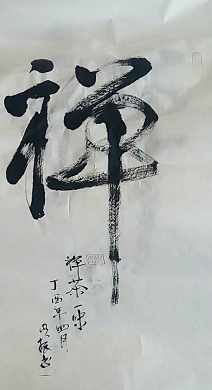 禅
禅茶一味
丁酉年四月
书